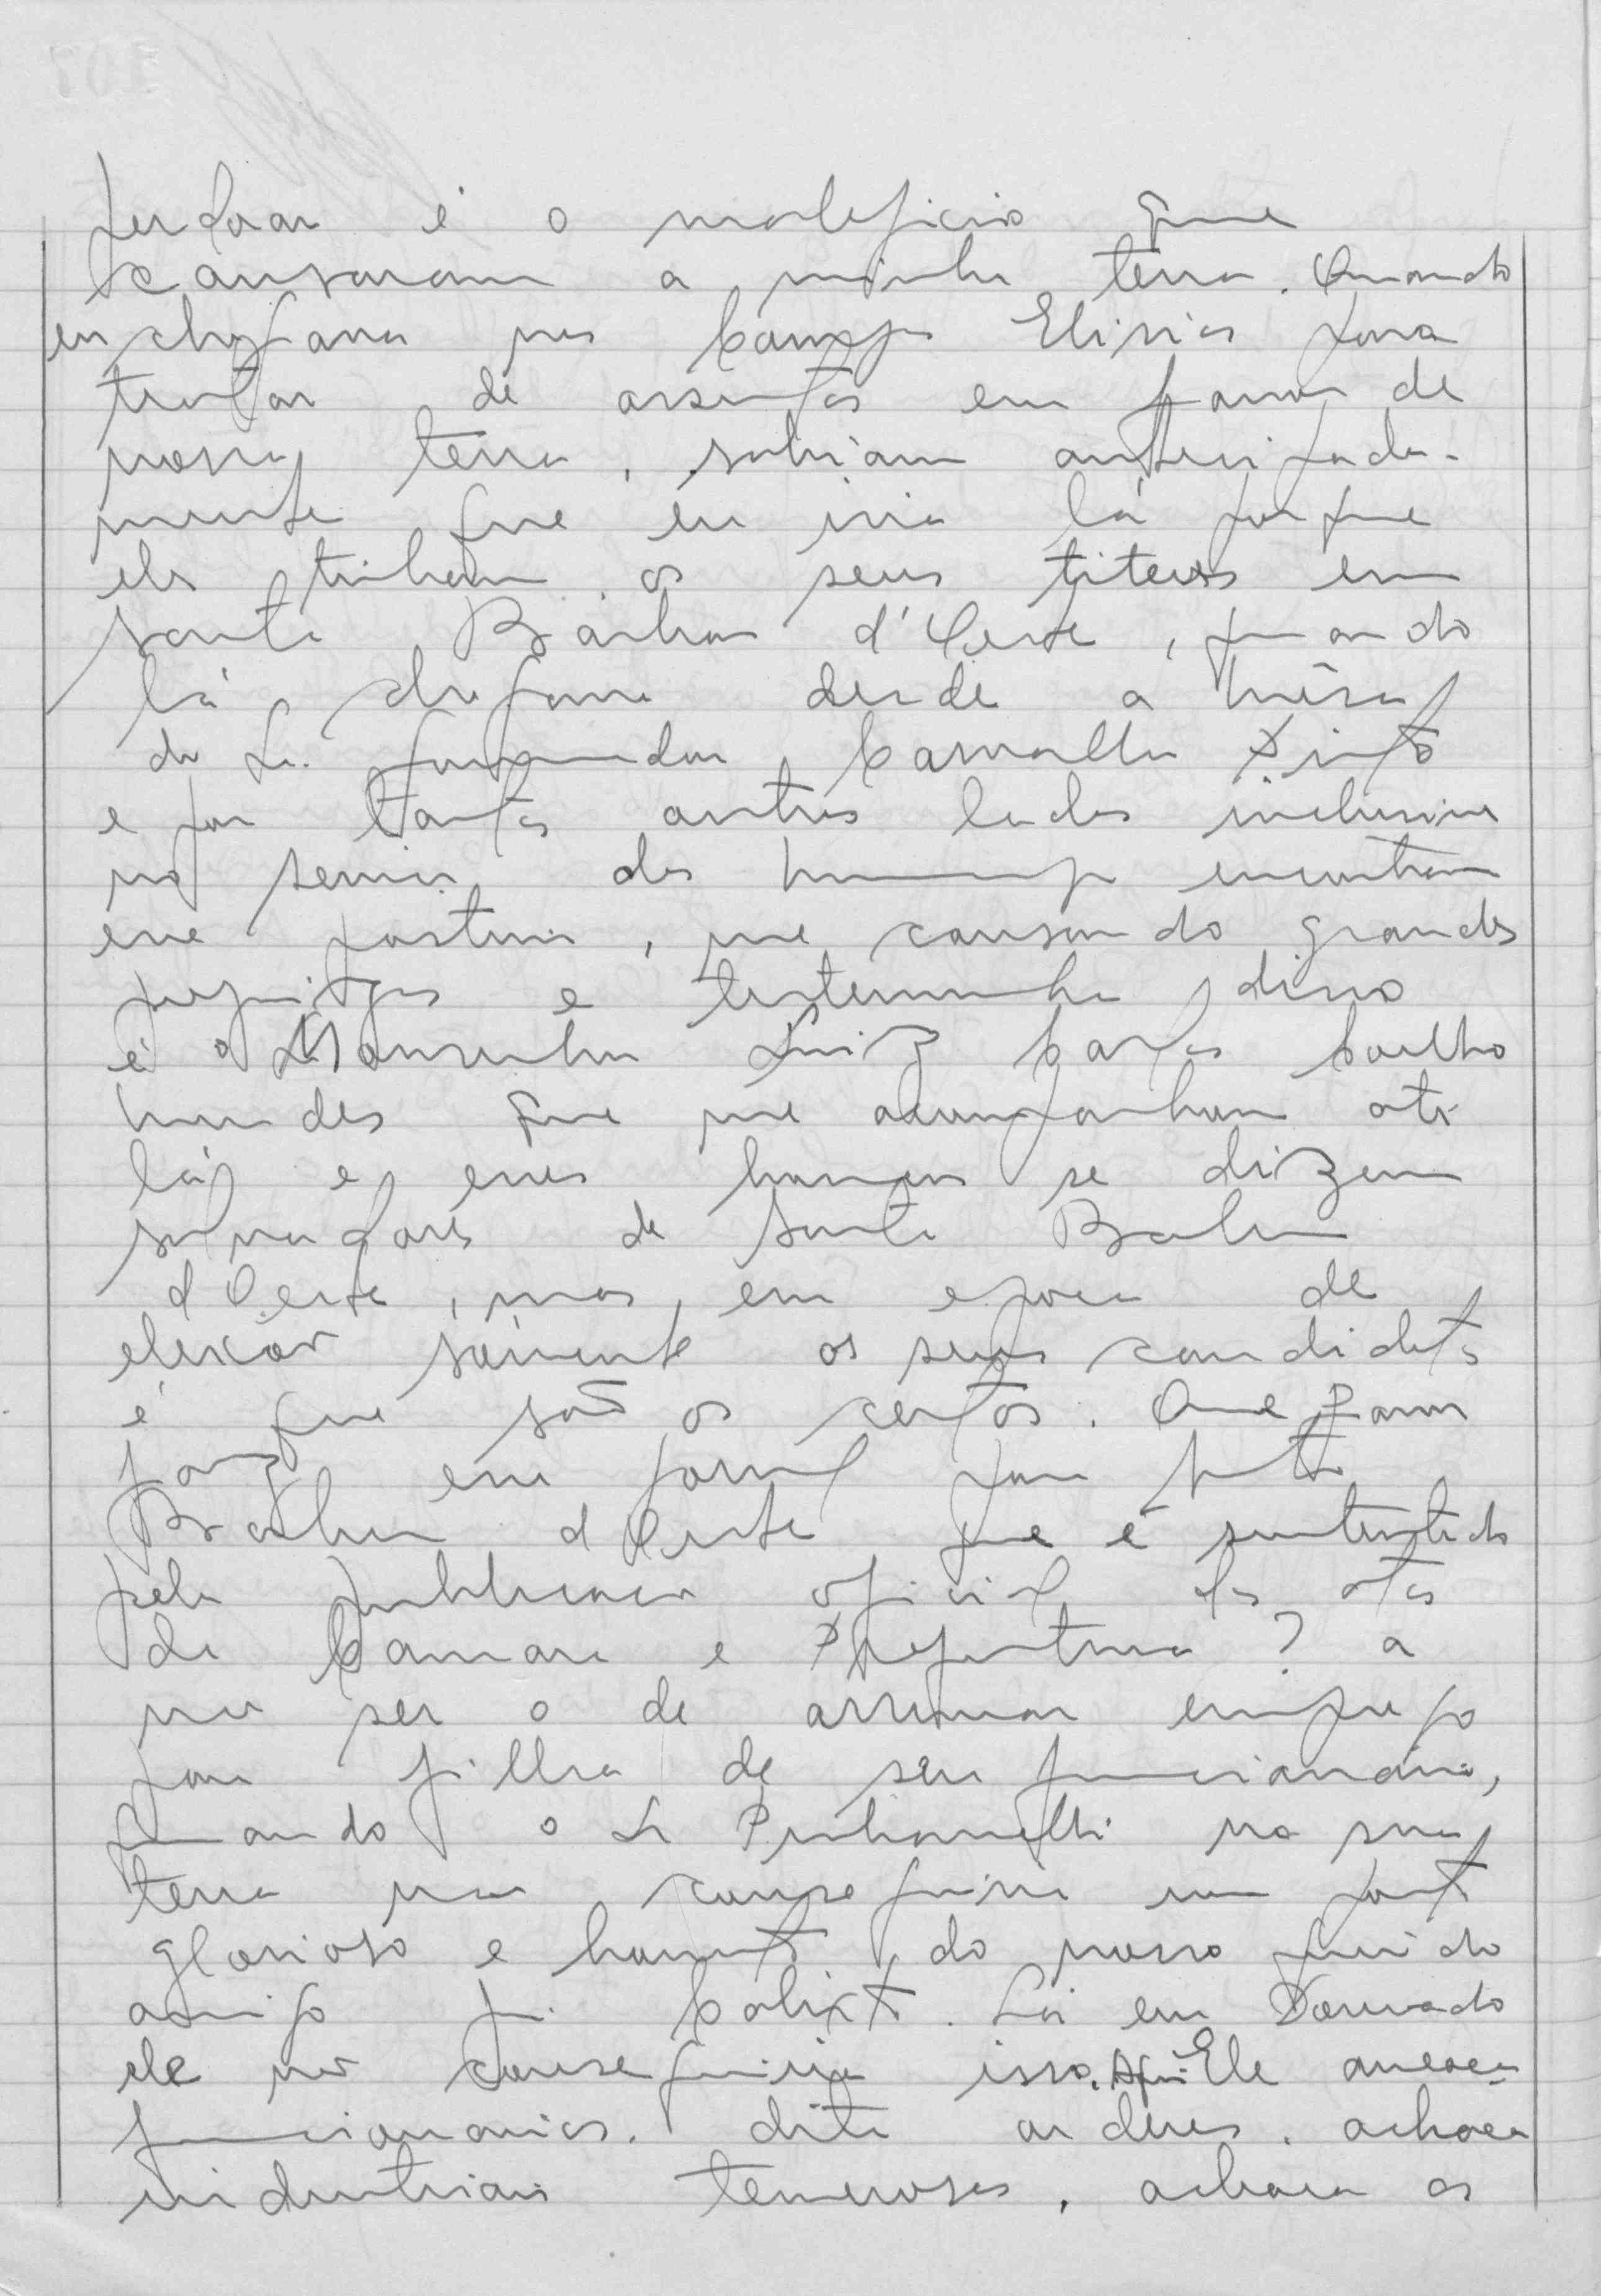 perdoar é o maleficio que
causaram a minha terra. Quando
eu chegava nos Campos Elisios para
tratar de assuntos em favor de
nossa terra, sabiam antecipada-
mente que eu iria lá porque
eles tinham os seus titeres em
Santa Bárbara d'Oeste, quando
lá chegava desde a mêsa
do Sr. Governador Carvalho Pinto
e por tantos outros lados inclusive
no
esse, me causando grandes
prejuizos e testemunha disso
é o Monsenhor Luiz Carlos Coelho
Mendes que me acompanhava até
lá e esses homens se dizem
salvadores de Santa Barbara
d'Oeste, mas, em epoca de
eleição sómente os seus candidatos
é que são os certos. Que
faz esse jornal para Santa
Barbara d'Oeste que é sustentado
pela publicação oficial dos atos
da Camara e Prefeitura? a
não ser o de arrumar emprego
para filha de seu funcionário,
quando o Sr na sua
terra não conseguiria um posto
glorioso e honesto do nosso querido
amigo Calixto. Lá em Dourado
ele não conseguiria isso. Aqui Ele ameaça
funcionarios. dita ordens. achaca
industriais temerosos, achaca os